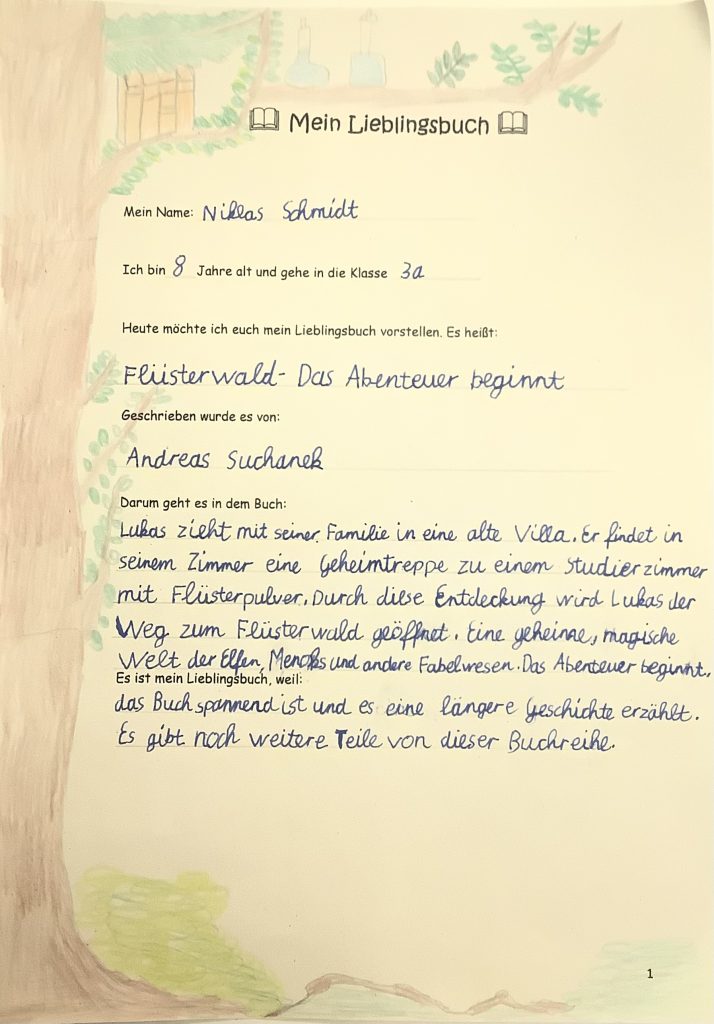 Mein Lieblingsbuch
Mein Name: Niklas Schmidt
Ich bin 8 Jahre alt und gehe in die Klasse 3a
Heute möchte ich euch mein Lieblingsbuch vorstellen. Es heißt:
Flüsterwald - Das Abenteuer beginnt
Geschrieben wurde es von:
Andreas Suchanek
Darum geht es in dem Buch:
Lukas zieht mit seiner Familie in eine alte Villa. Er findet in
seinem Zimmer eine Geheimtreppe zu einem Studierzimmer
mit Flüsterpulver. Durch diese Entdeckung wird Lukas der
Weg zum Flüsterwald geöffnet. Eine geheime, magische
Welt der Elfen, Menoks und andere Fabelwesen. Das Abenteuer beginnt.
Es ist mein Lieblingsbuch, weil:
das Buch spannend ist und es eine längere Geschichte erzählt.
Es gibt noch weitere Teile von dieser Buchreihe.
1